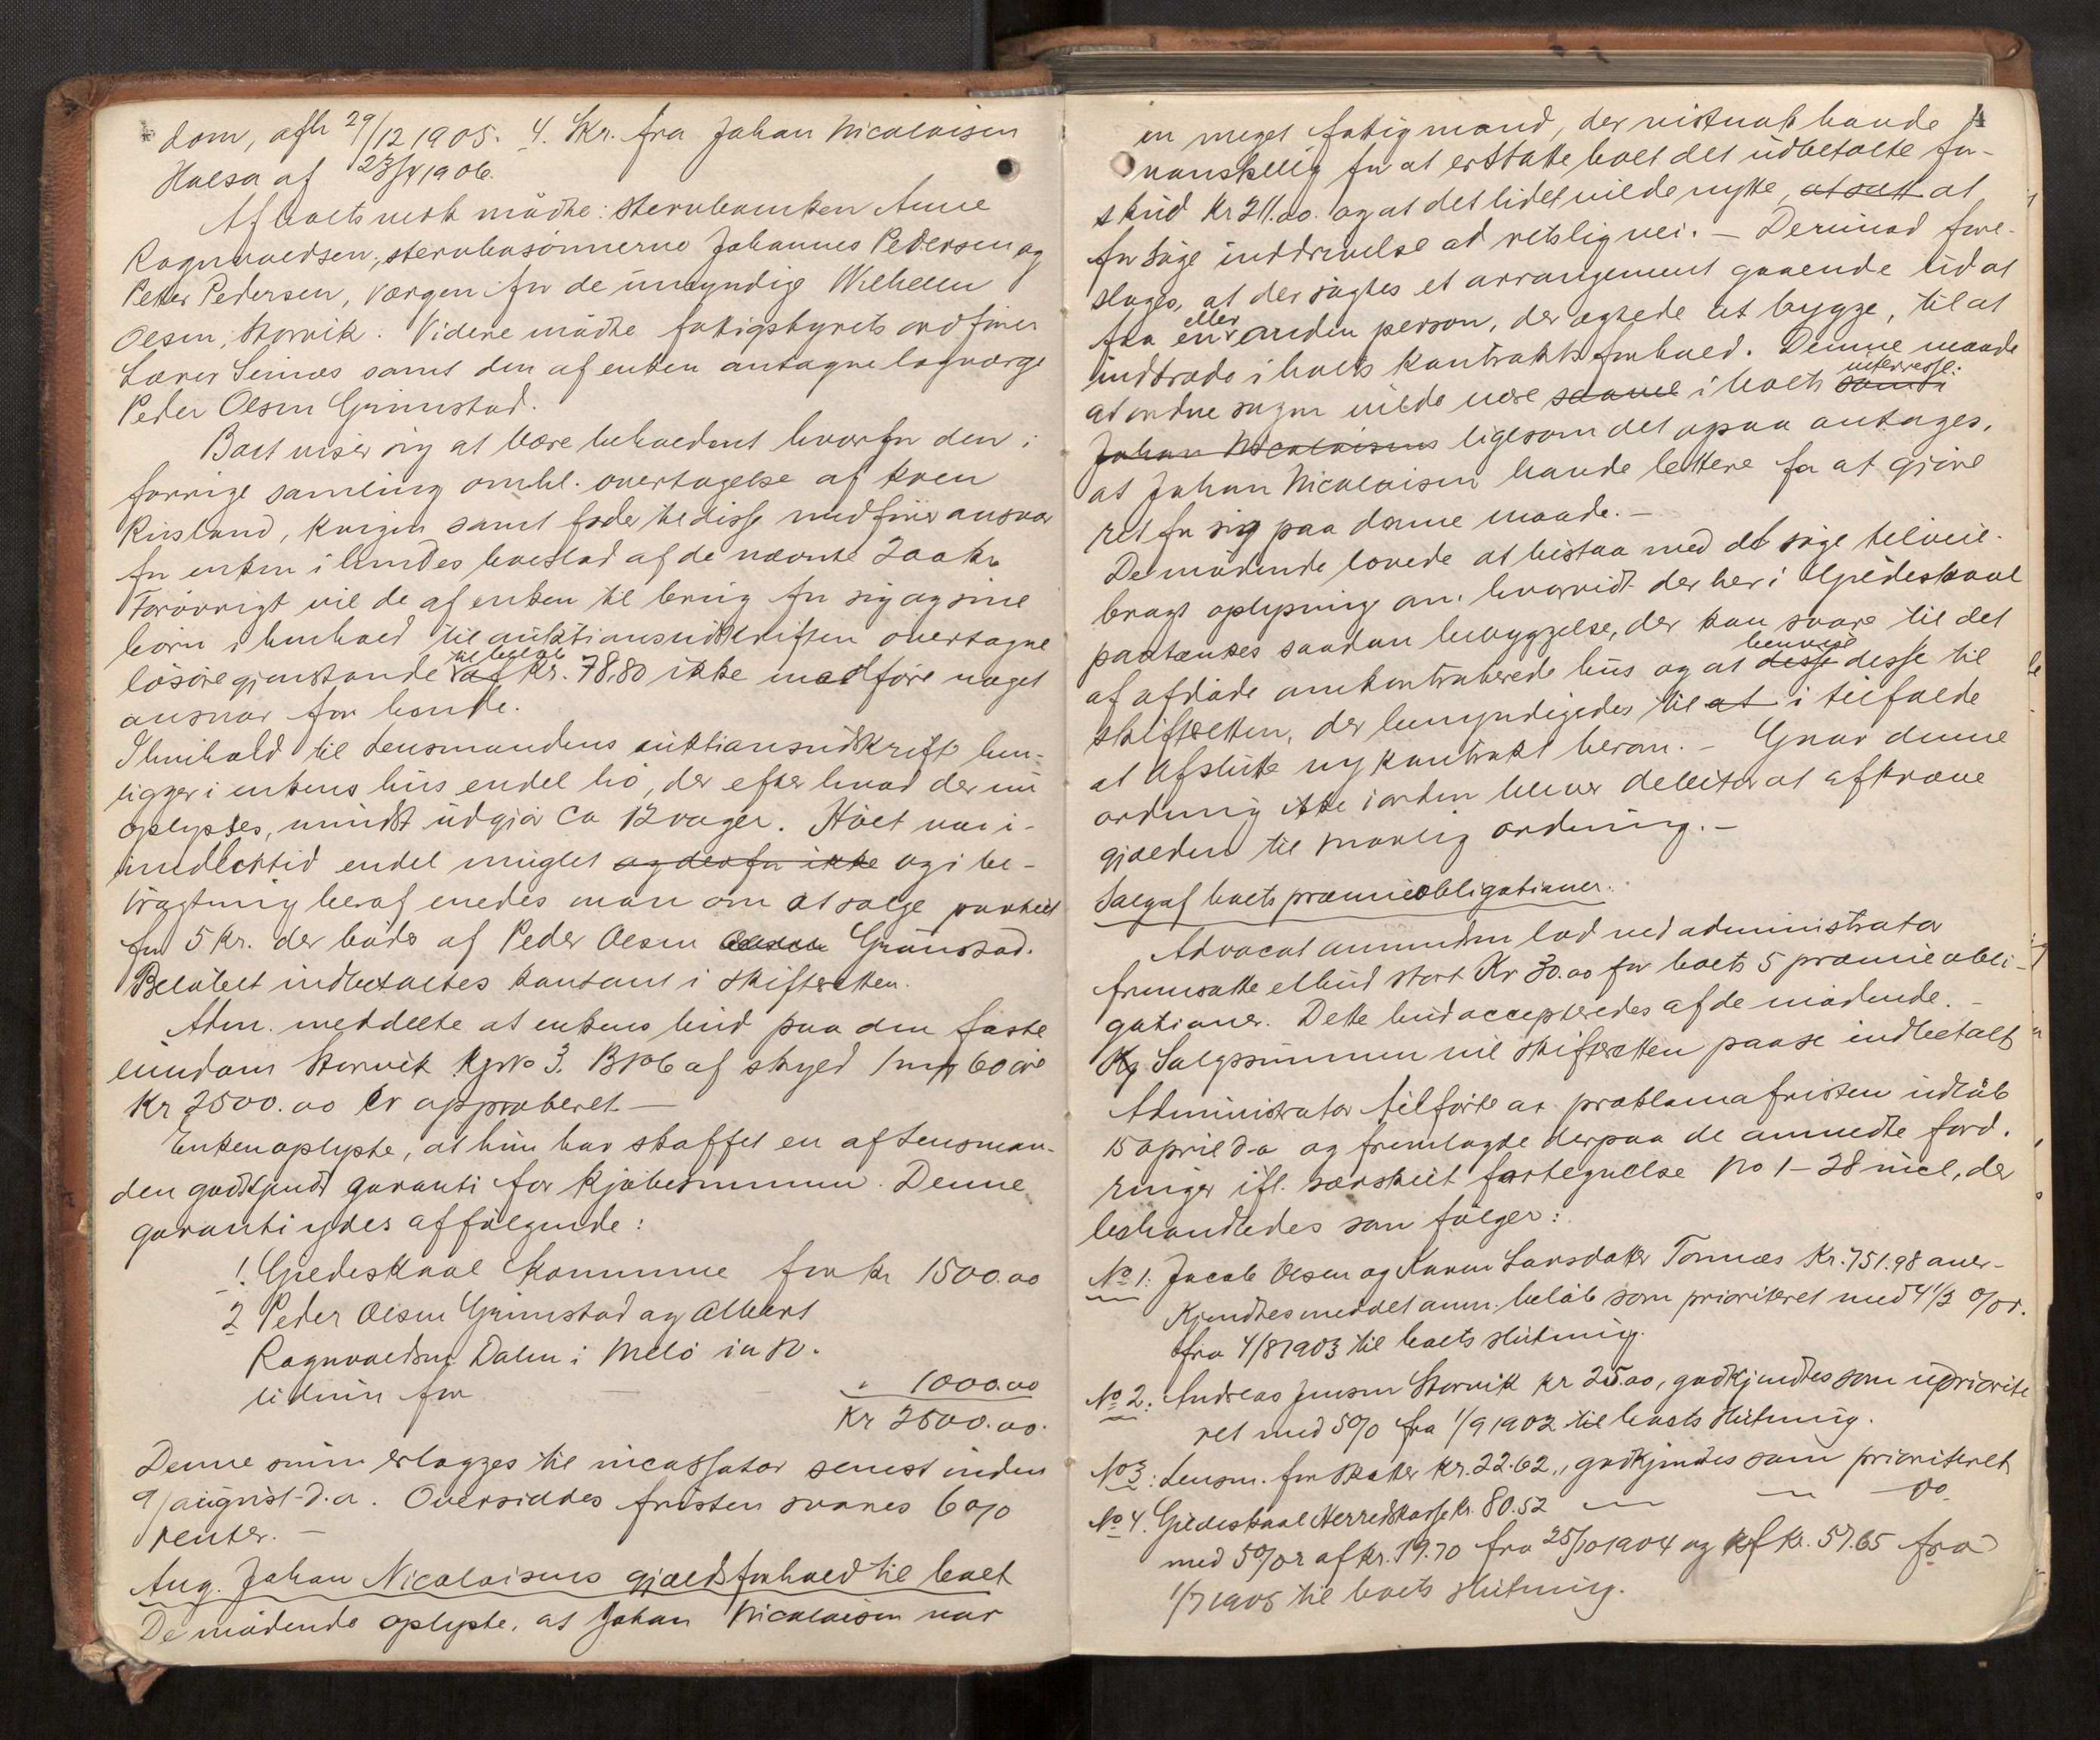 dom, afh 29/12 1905. 4. Skr. fra Johan Nicolaisen
Halsa af 23/4 1906.
Af boets vedk mødte: stervboenken Anne
Ragnvaldsen, stervbosønnerne Johannes Pedersen og
Peter Pedersen, værgen for de umyndige Wilhelm
Olsen, Storvik. Videre mødte fattigstyrets ordfører
Lærer Selnæs samt den af enken antagne lagværge
Peder Olsen Grimstad.
Boet viser sig at være beholdent hvorfor den i
forrige samling omhl. overtagelse af koen
Risland, kvigen samt foder til disse medfører ansvar
for enken i hendes boeslod af de nævnte 200 kr
Forøvrigt vil de af enken til brug for sig og sine
børn i henhold til auktionsudskriften overtagne
løsøregjenstande til beløb af Kr. 78.80 ikke medføre noget
ansvar for hende.
I henhold til Lensmandens auktionsudskrift hen-
ligger i enkens hus endel hø, der efter hvad der nu
oplystes, mindst udgjør ca 12 voger. Høet var i-
midlertid endel muglet og derfor ikke og i be-
tragtning heraf enedes man om at sælge partiet
for 5 kr. der bødes af Peder Olsen Grimstad.
Beløbet indbetaltes kontant i skifteretten.
Adm. meddelte at enkens bud paa den faste
eiendom Storvik Gno 3. Bno 6 af skyld 1 mrk 60 øre
Kr 2500.00 er approberet —
Enken oplyste, at hun har skaffet en af Lensman-
den godkjendt garanti for kjøbesummen. Denne
garanti ydes af følgende:
1. Gildeskaal Kommune for kr 1500.00
2 Peder Olsen Grimstad og Albert
Ragnvaldsen Dalen i Melø in so-
lidum for — " 1000.00
Kr 2500.00.
Denne sum erlægges til incassator senest inden
9/august d.a. Oversiddes fristen svares 6 %
renter. —
Ang. Johan Nicolaisens gjældsforhold til boet
De mødende oplyste, at Johan Nicolaisen var
4
en meget fattig mand, der vistnok havde
vanskelig for at erstatte boet det udbetalte for-
skud Kr 211.00. og at det lidet vilde nytte, at sætt at
forsøge inddrivelse ad retslig vei. — Derimod fore-
sloges, at der søgtes et arrangement gaaende ud at
faa en eller anden person, der agtede at bygge, til at
indtræde i boets kontraktsforhold. Denne maade
at ordne sagen vilde være saavel i boets som i interesse:
Johan Nicolaisens ligesom det ogsaa antages,
at Johan Nicolaisen havde lettere for at gjøre
ret for sig paa denne maade. —
De mødende lovede at bistaa med at søge tilveie-
bragt oplysning om. hvorvidt der her i Gildeskaal
paatænkes saadan bebyggelse, der kan svare til det
af afdøde omkontraherede hus og at henvise desse disse til
skifteretten, der bemyndigedes til at i tilfælde
at afslutte ny kontrakt herom. — Gaar denne
ordning ikke i orden bliver debitor at afkræve
gjælden til mærlig ordning. —
Salg af boets præmieobligationer.
Advocat Ammundsen lod ved administrator
fremsætte et bud stort Kr 30.00 for boets 5 præmieobli-
gationer. Dette bud accepteredes af de mødende. —
Salgssummen vil skifteretten paase indbetalt
Administrator tilførte at proklamafristen udløb
15 april d.a og fremlagde derpaa de anmeldte ford.
ringer ifl. særskilt fortegnelse No 1–28 incl, der
behandledes som følger:
No 1: Jacob Olsen og Karen Larsdatter Tonnes Kr. 751.98 aner-
kjendtes med det anm. beløb som prioriteret med 4 1/2 % r.
fra 4/8 1903 til boets slutning.
No 2: Andreas Jensen Storvik kr 25.00, godkjendtes som upriorite
ret med 5% fra 1/9 1902 til boets slutning.
No 3: Lensm. for skatter Kr. 22.62, godkjendtes som prioriteret
No 4. Gildeskaal Herredskasse kr. 80.52 — — do
med 5% r af kr. 19.70 fra 25/10 1904 og af kr. 57.65 fra
1/7 1905 til boets slutning.